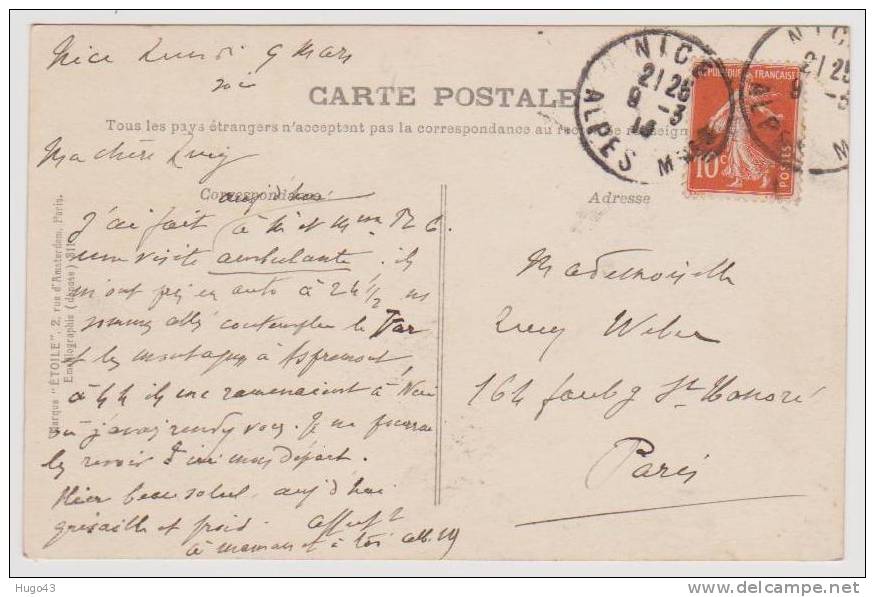 Nice Lundi 9 Mars
soir
CARTE POSTALE
Tous les pays étrangers n'acceptent pas la correspondance au
Ma chère Lucy
Correspondance
Adresse
aujd'hui
J'ai fait à M et Mme
une visite ambulante ils
m'ont pris en auto à 2h 1/2 ns
sommes allés contempler le Var
et les montagnes à Aspremont
à 4h ils me ramenaient à Nice
où j'avais rendez vous. Je ne pourrai
les revoir d'ici mon départ.
Hier beau soleil aujd'hui
grisaille et froid.
à maman et à toi
Mademoiselle
Lucy Weber
164 faubg St Honoré
Paris
NICE
21 25
9 -3
14
ALPES MMES
NICE
21 25
9 -3
ALPES M
REPUBLIQUE FRANÇAISE
10c
POSTES
Marque "ÉTOILE", 2, rue d'Amsterdam, Paris.
Hugo43
www.delcampe.net